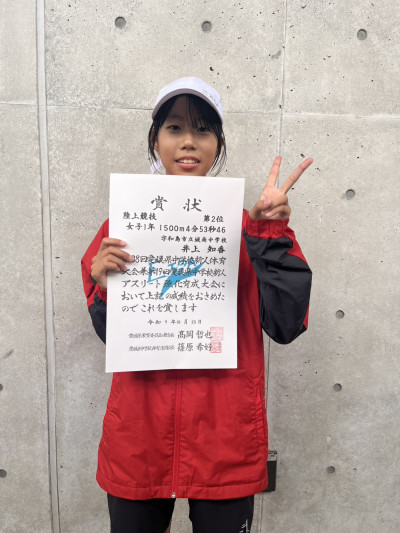 賞状
陸上競技 第2位
女子1年 1500m4分53秒46
宇和島市立城南中学校
井上 知香
38回愛媛県中学校新人体育
大会兼第19回愛媛県中学校新人
アスリート強化育成大会に
おいて上記の成績をおさめた
のでこれを賞します
高岡 哲也
篠原 希好